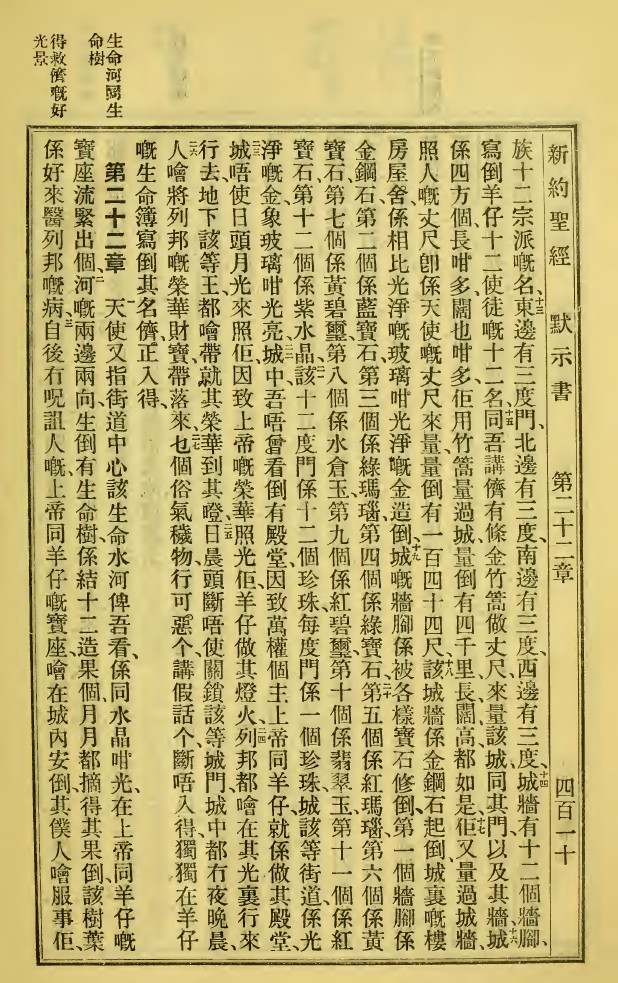 新約聖經 默示書 第二十二章 四百一十
族十二宗派嘅名、十三東邊有三度門、北邊有三度、南邊有三度、西邊有三度、十四城牆有十二個牆腳、
寫倒羊仔十二使徒嘅十二名、十五同吾講儕有條金竹篙做丈尺來量該城同其門、以及其牆、十六城
係四方個、長咁多闊也咁多、佢用竹篙量過城、量倒有四千里、長闊高都如是、十七佢又量過城牆、
照人嘅丈尺卽係天使嘅丈尺來量、量倒有一百四十四尺、十八該城牆係金鋼石起倒、城裏嘅樓
房屋舍、係相比光淨嘅玻璃咁光淨嘅金造倒、十九城嘅牆腳係被各樣寶石修倒、第一個牆腳係
金鋼石、第二個係藍寶石、第三個係綠瑪瑙、第四個係綠寶石、二十第五個係紅瑪瑙、第六個係黃
寶石、第七個係黃碧璽、第八個係水倉玉、第九個係紅碧璽、第十個係翡翠玉、第十一個係紅
寶石、第十二個係紫水晶、二一該十二度門係十二個珍珠、每度門係一個珍珠、城該等街道、係光
淨嘅金、象玻璃咁光亮、二二城中吾唔曾看倒有殿堂、因致萬權個主上帝同羊仔、就係做其殿堂、
二三城唔使日頭月光來照佢、因致上帝嘅榮華照光佢、羊仔做其燈火、二四列邦都噲在其光裏行來
行去、地下該等王、都噲帶就其榮華到其嶝、二五日晨頭斷唔使關鎖該等城門、城中都冇夜晚晨、
二六人噲將列邦嘅榮華財寶、帶落來、二七乜個俗氣穢物、行可惡个、講假話个、斷唔入得、獨獨在羊仔
嘅生命簿寫倒其名儕、正入得、
第二十二章 一天使又指街道中心該生命水河俾吾看、係同水晶咁光、在上帝同羊仔嘅
寶座流緊出個、二河嘅兩邊兩向生倒有生命樹、係結十二造果個、月月都摘得其果倒、該樹葉
係好來醫列邦嘅病、三自後冇呪詛人嘅、上帝同羊仔嘅寶座、噲在城內安倒、其僕人噲服事佢、
生命河同生
命樹
得救儕嘅好
光景